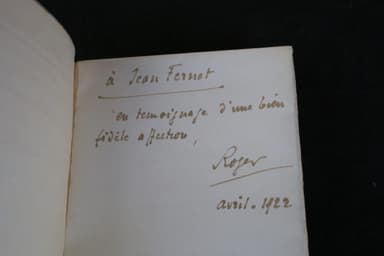 à Jean Fernet
en temoignage d'une bien
fidèle affection,
Roger
avril. 1922